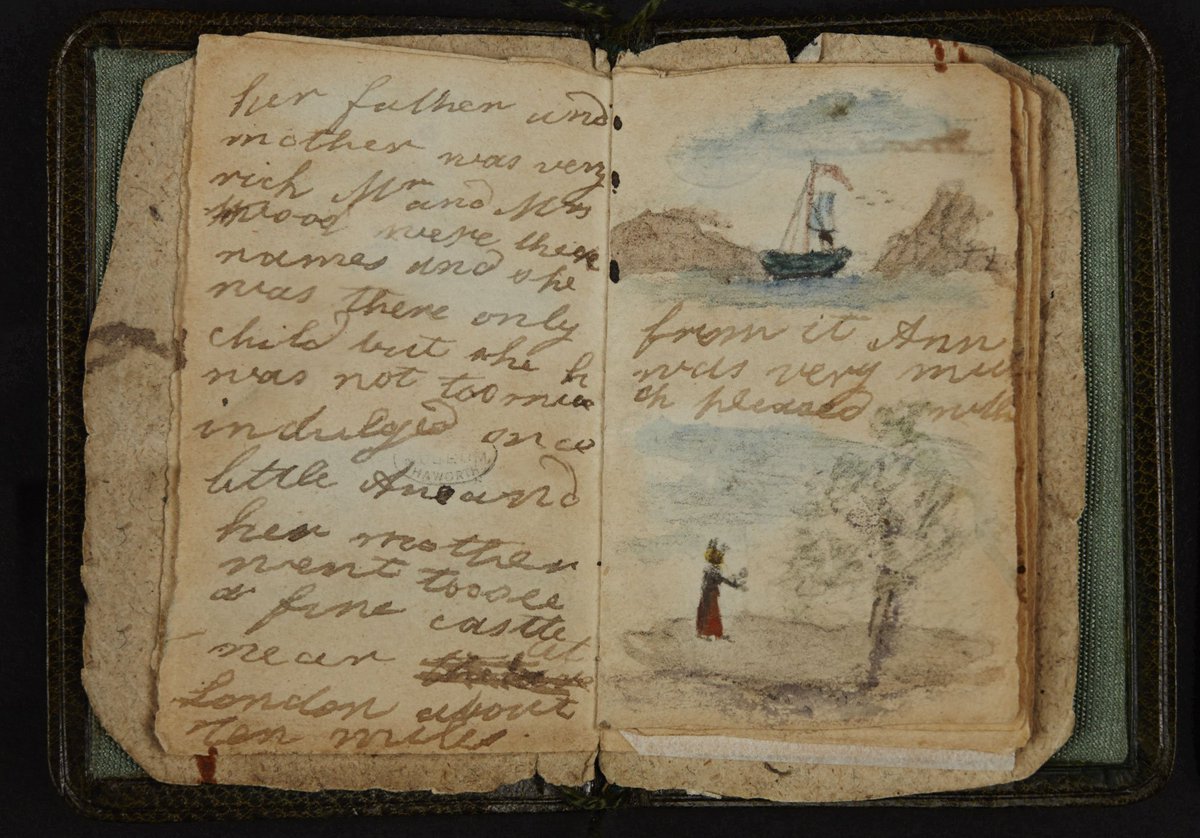 her father and
mother was very
rich Mr and Mrs
Wood were
names and she
was there only
child but she
was not too muc
indulged once
MUSEUM
HAWORTH
little Ane and
her mother
went too see
a fine castle
near
London about
ten miles.
from it Ann
was very mu
ch pleased with